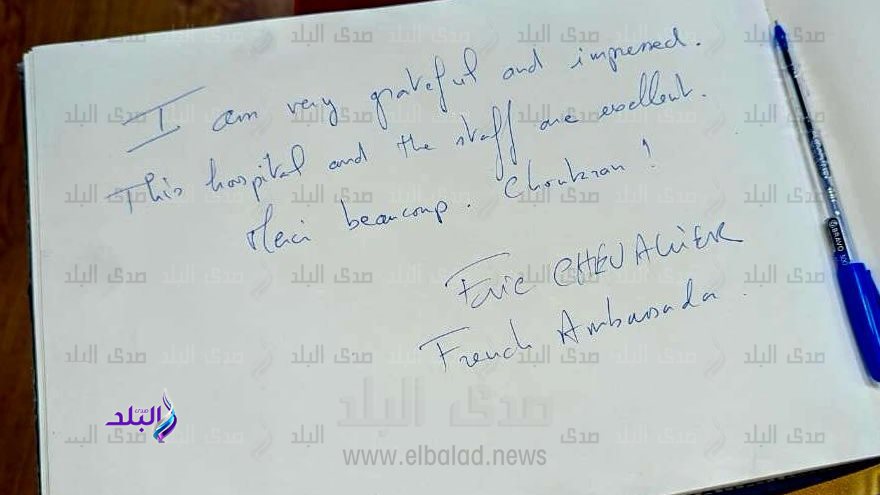 I am very grateful and impressed.
This hospital and the staff are excellent.
Merci beaucoup. Choukran !
Eric CHEVALLIER
French Ambassador.
صدى البلد
صدى
البلد
www.elbalad.news
BRAVO